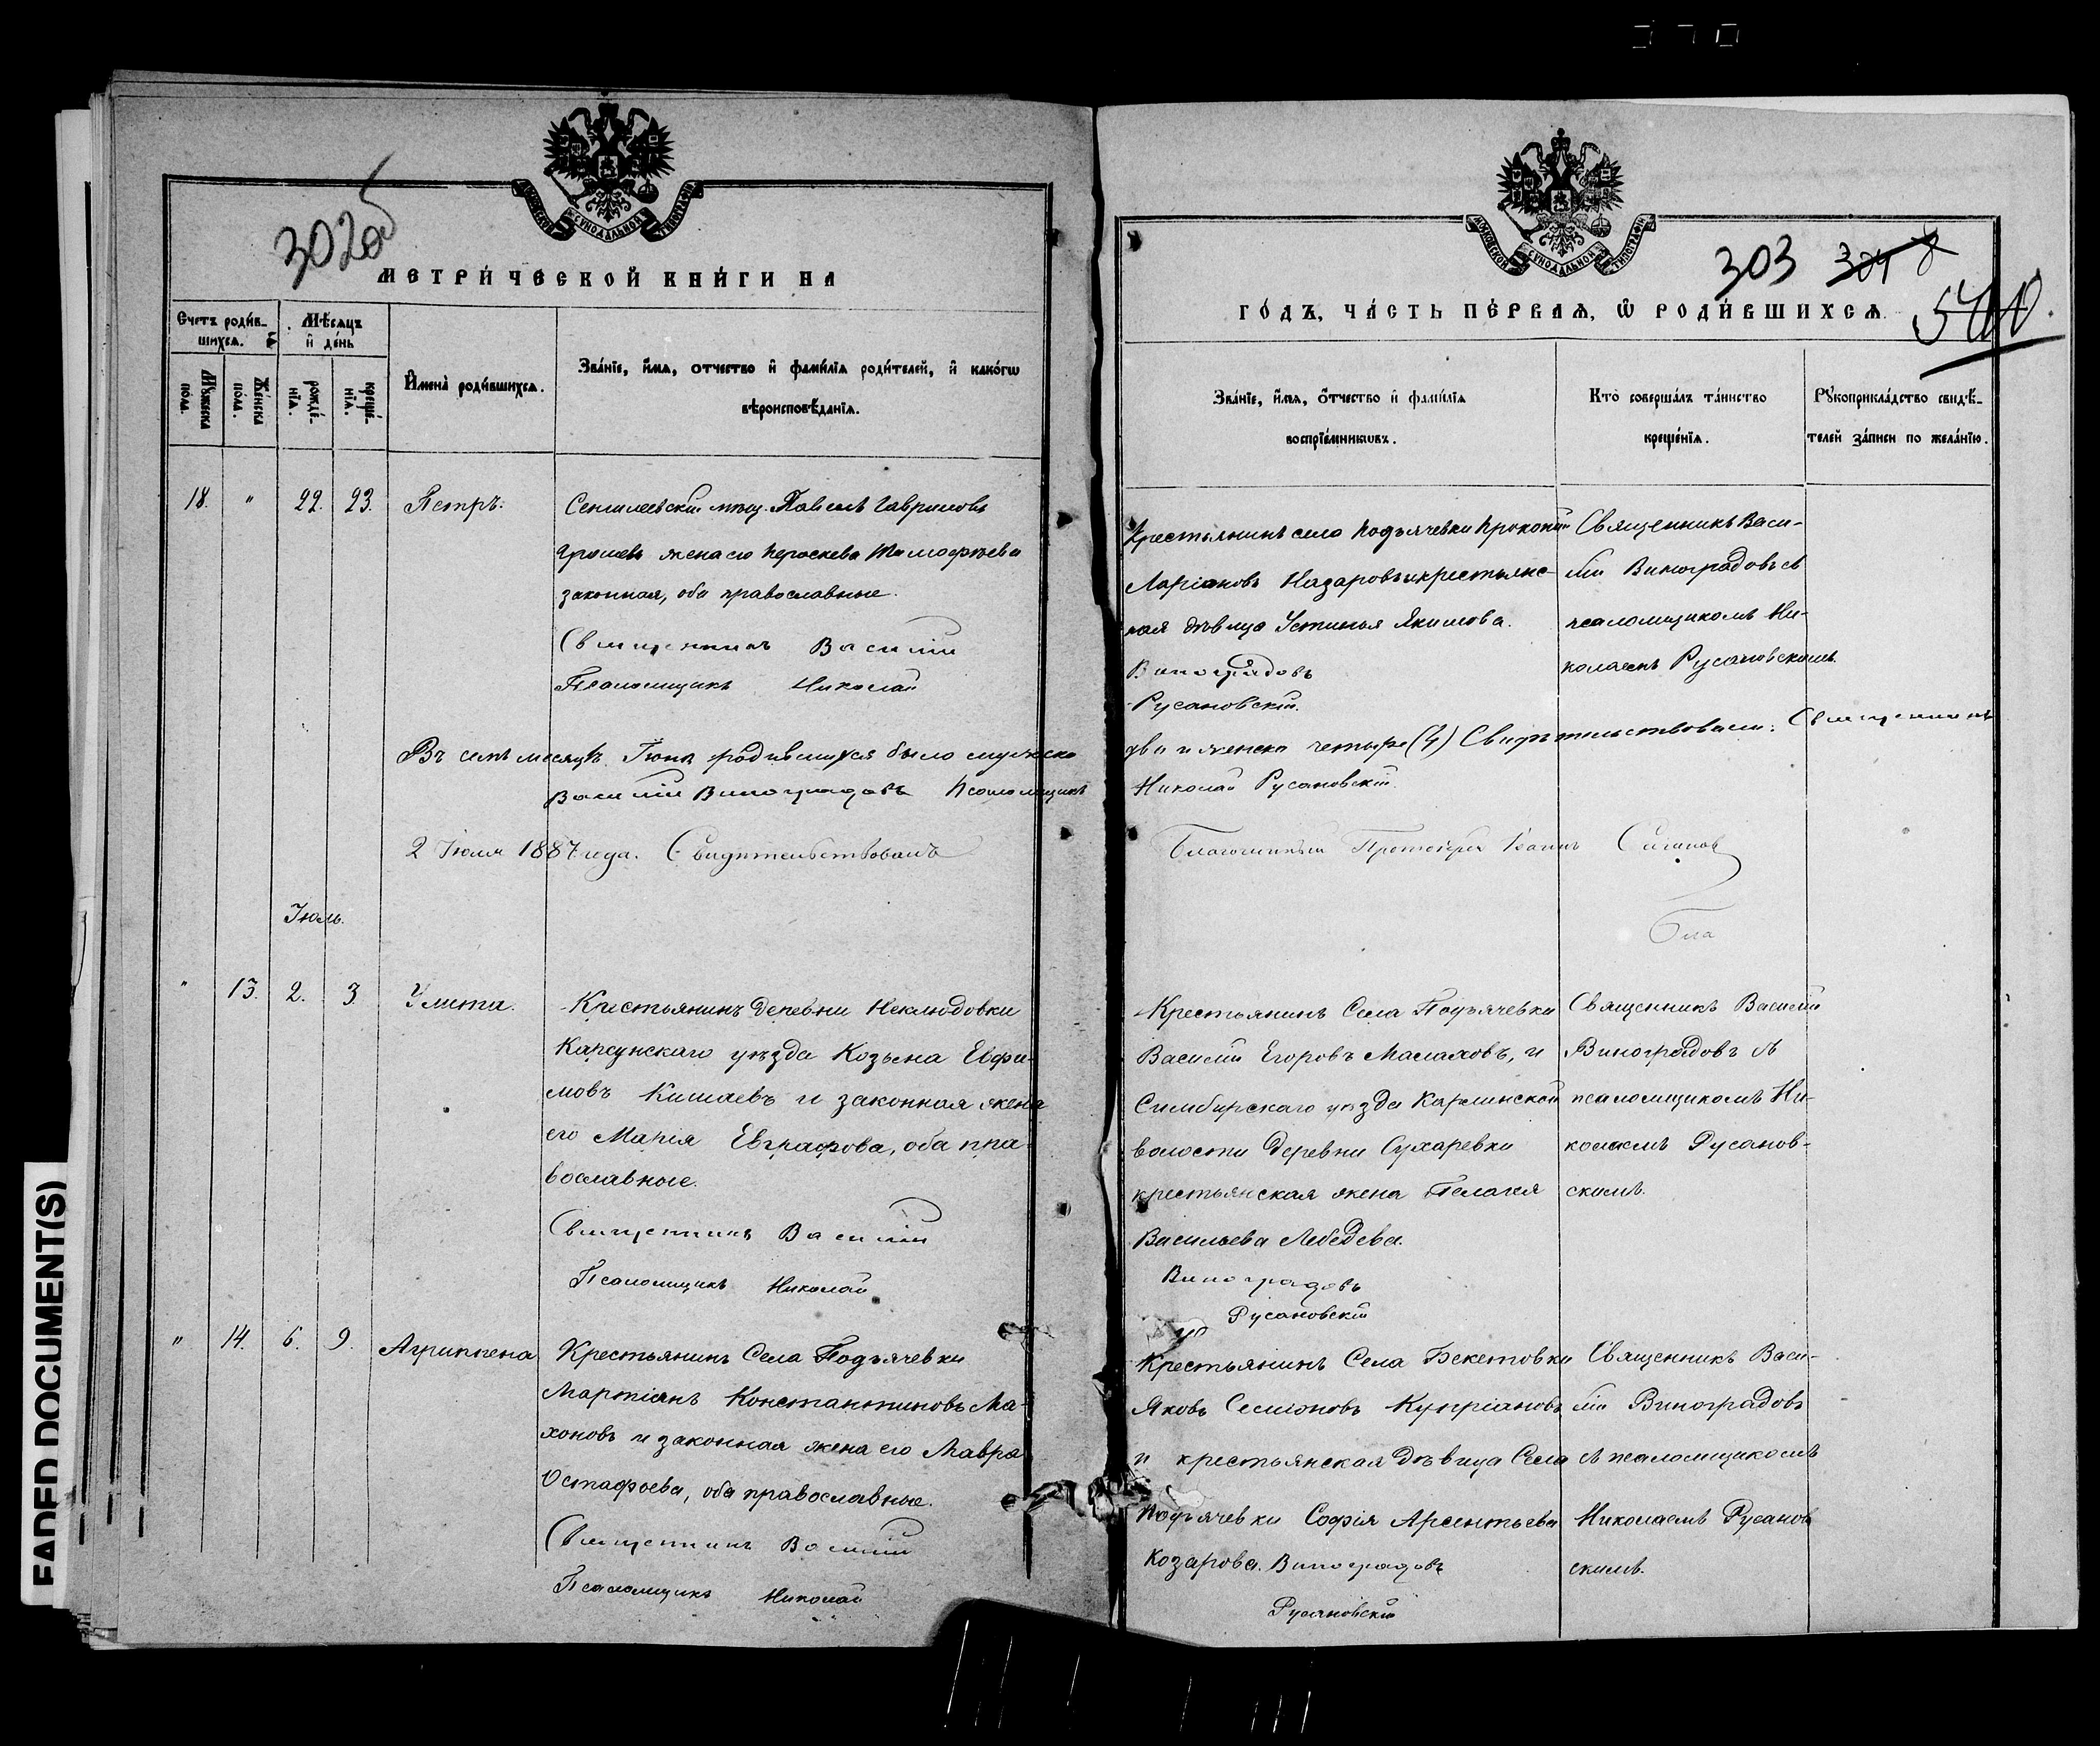 302 об
МОСКОВСКОЙ СѴНОДАЛЬНОЙ ТИПОГРАФІИ
МЕТРИ́ЧЕСКОЙ КНИ́ГИ НА
Счетъ роди́в-
шихсѧ.
Мѣ́сѧцъ
и҆ де́нь
Мꙋ́жеска
пола.
Же́нска
по́ла.
рожде́-
нїѧ.
креще́-
нїѧ.
И҆мена̀ роди́вшихсѧ.
Зва́нїе, и҆́мѧ, отчество и҆ фами́лїѧ роди́телей, и҆ како́гѡ
вѣроисповѣ́данїѧ.
18. " 22. 23. Петръ.
Сенгилеевскій мѣщ. Павелъ Гавриловъ
Ярошевъ жена его Пероскева Тимофѣева
законная, оба православные.
Священникъ Василій
Псаломщикъ Николай
Въ семъ месяцѣ Іюнѣ родившихся было мужска
Василій Виноградовъ Псаломщикъ
2 Іюля 1887 года. Свидѣтельствовалъ
Іюль.
" 13. 2. 3. Улита.
Крестьянинъ Деревни Неклюдовки
Карсунскаго уѣзда Козьма Евфи-
мовъ Кишаевъ и законная жена
его Марія Евграфова, оба пра-
вославные.
Священникъ Василій
Псаломщикъ Николай
" 14. 6. 9. Агриппена
Крестьянинъ Села Подъячевки
Мартіянъ Константиновъ Ма-
хоновъ и законная жена его Мавра
Остафьева, оба православные.
Священникъ Василій
Псаломщикъ Николай
303 304
МОСКОВСКОЙ СѴНОДАЛЬНОЙ ТИПОГРАФІИ
ГО́ДЪ, ЧА́СТЬ ПЕ́РВАѦ, Ѡ҆ РОДИ́ВШИХСѦ
Зва́нїе, и҆́мѧ, о҆́тчество и҆ фами́лїѧ
воспрїе́мникѡвъ.
Кто̀ соверша́лъ та́инство
креще́нїѧ.
Рꙋкоприкла́дство свидѣ́-
телей за́писи по жела́нїю.
Крестьянинъ села Подъячевки Прокопій
Ларіоновъ Назаровъ и крестьянс-
кая дѣвица Устинья Якимова.
Виноградовъ
Русановскій.
Священникъ Васи-
лій Виноградовъ съ
псаломщикомъ Ни-
колаемъ Русановскимъ.
два и женска четыре (4) Свидѣтельствовали: Священникъ
Николай Русановскій
Благочинный Протоіерей Іоаннъ Сигановъ
Бла
Крестьянинъ Села Подъячевки
Василій Егоровъ Малаховъ, и
Симбирскаго уѣзда Карлинской
волости Деревни Сухаревки
крестьянская жена Пелагея
Васильева Лебедева.
Виноградовъ
Русановскій
Священникъ Василій
Виноградовъ съ
псаломщикомъ Ни-
колаемъ Русанов-
скимъ.
Крестьянинъ Села Бекетовки
Яковъ Семіоновъ Купріановъ
и крестьянская дѣвица Села
Подъячевки Софія Арсентьева
Козарова. Виноградовъ
Русановскій
Священникъ Васи-
лій Виноградовъ
съ псаломщикомъ
Николаемъ Русанов
скимъ.
FADED DOCUMENT(S)